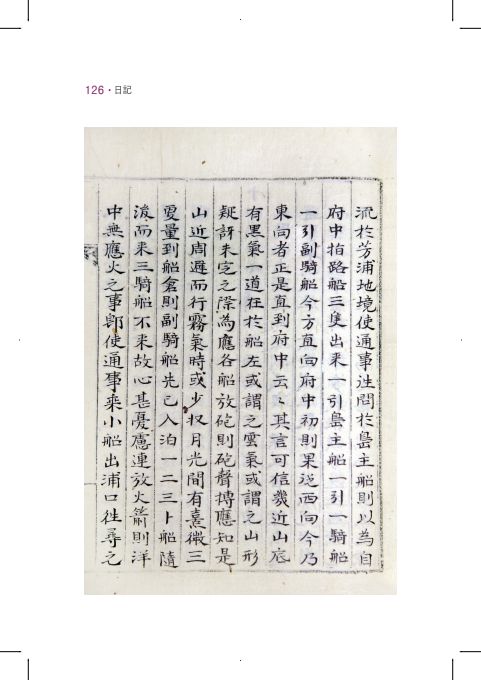 126 · 日記
流於芳浦地境使通事送問於島主船則以為自
府中指路船三隻出來一引島主船一引一騎船
一引副騎船今方直向府中初則果迤西向今乃
東向者正是直到府中云〻其言可信幾近山底
有黑氣一道在於船左或謂之雲氣或謂之山形
疑訝未定之際為應各船放砲則砲聲搏應知是
山近周避而行霧氣時或少收月光間有熹微三
更量到船倉則副騎船先已入泊一二三卜船隨
後而來三騎船不來故心甚憂慮連放火箭則洋
中無應火之事卽使通事乘小船出浦口往尋之